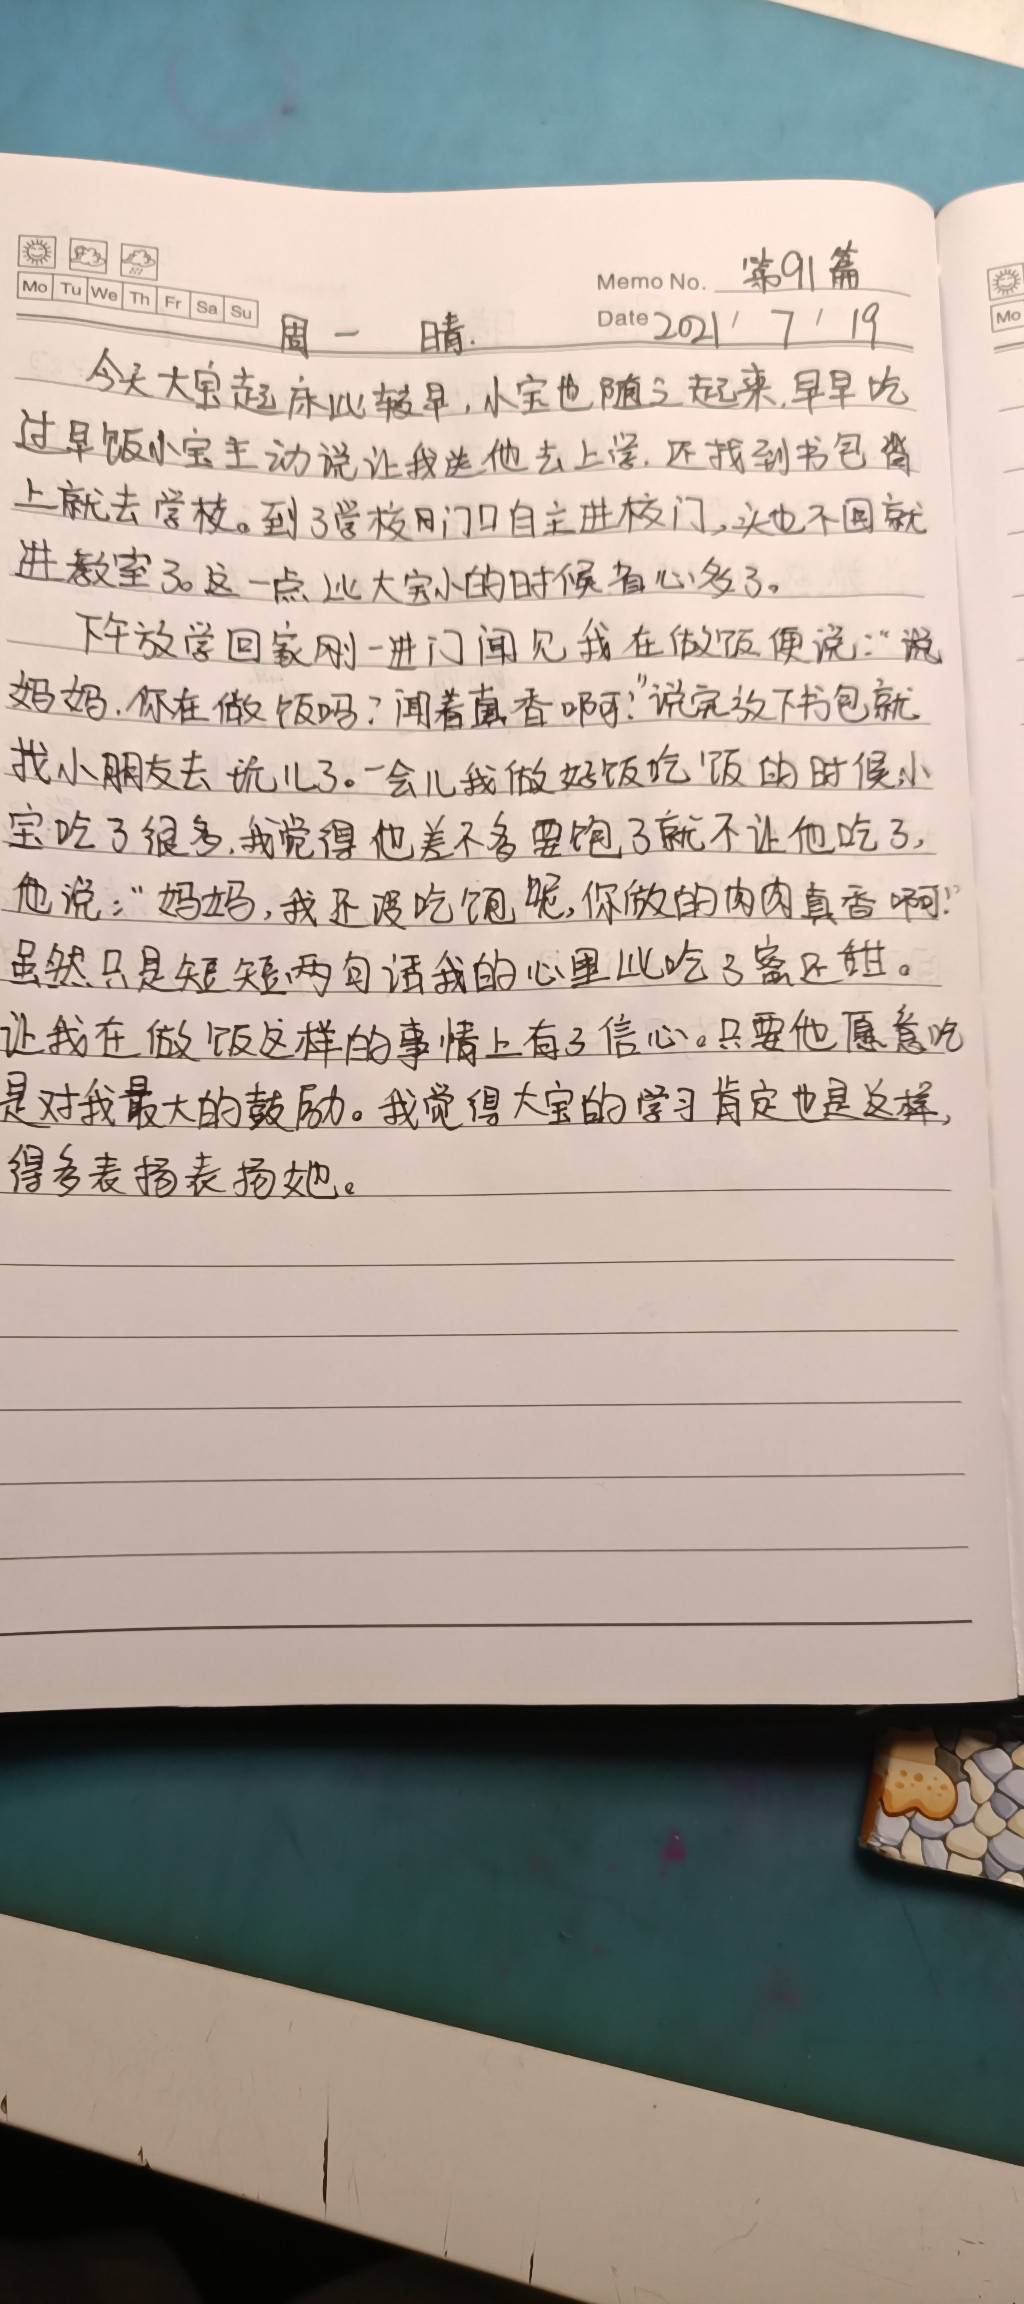 Mo Tu We Th Fr Sa Su
Memo No. 第91篇
Date 2021 / 7 / 19
周一 晴.
今天大宝起床比较早,小宝也随之起来,早早吃
过早饭小宝主动说让我送他去上学.还找到书包背
上就去学校。到了学校门口自主进校门,头也不回就
进教室了。这一点比大宝小的时候省心多了。
下午放学回家刚一进门闻见我在做饭便说:“说
妈妈.你在做饭吗?闻着真香啊!”说完放下书包就
找小朋友去玩儿了。一会儿我做好饭吃饭的时候,小
宝吃了很多.我觉得他差不多要饱了就不让他吃了,
他说:“妈妈,我还没吃饱呢,你做的肉肉真香啊!”
虽然只是短短两句话我的心里比吃了蜜还甜。
让我在做饭这样的事情上有了信心。只要他愿意吃
是对我最大的鼓励。我觉得大宝的学习肯定也是这样,
得多表扬表扬她。
Mo